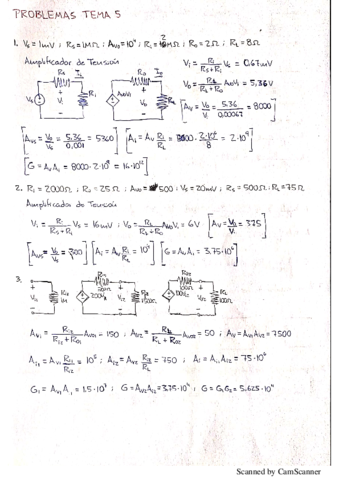 PROBLEMAS TEMA 5
1. Vs = 1mV ; Rs = 1MΩ ; Avo = 10⁴ ; Ri = 2MΩ ; Ro = 2Ω ; RL = 8Ω
Amplificador de Tensión
Vi = Ri/(Rs+Ri) Vs = 0.67mV
Vo = RL/(RL+Ro) AvoVi = 5,36V
[Av = Vo/Vi = 5.36/0.00067 = 8000]
[Avs = Vo/Vs = 5.36/0.001 = 5360] [Ai = Av Ri/RL = 8000·2·10⁶/8 = 2·10⁹]
[G = AvAi = 8000·2·10⁹ = 16·10¹²]
2. Ri = 2000Ω ; Ro = 25Ω ; Avo = 500 ; Vs = 20mV ; Rs = 500Ω ; RL = 75Ω
Amplificador de Tensión
Vi = Ri/(Rs+Ri) Vs = 16mV ; Vo = RL/(RL+Ro) AvoVi = 6V [Av = Vo/Vi = 375]
[Avs = Vo/Vs = 300] [Ai = Av Ri/RL = 10⁴] [G = AvAi = 3.75·10⁶]
3.
Av1 = Ri2/(Ri2+Ro1) Avo1 = 150 ; Av2 = RL/(RL+Ro2) Avo2 = 50 ; Av = Av1Av2 = 7500
Ai1 = Av1 Ri1/Ri2 = 10⁵ ; Ai2 = Av2 Ri2/RL = 750 ; Ai = Ai1Ai2 = 75·10⁶
G1 = Av1Ai1 = 1.5·10⁷ ; G = Av2Ai2 = 3.75·10⁴ ; G = G1G2 = 5.625·10¹¹
Scanned by CamScanner